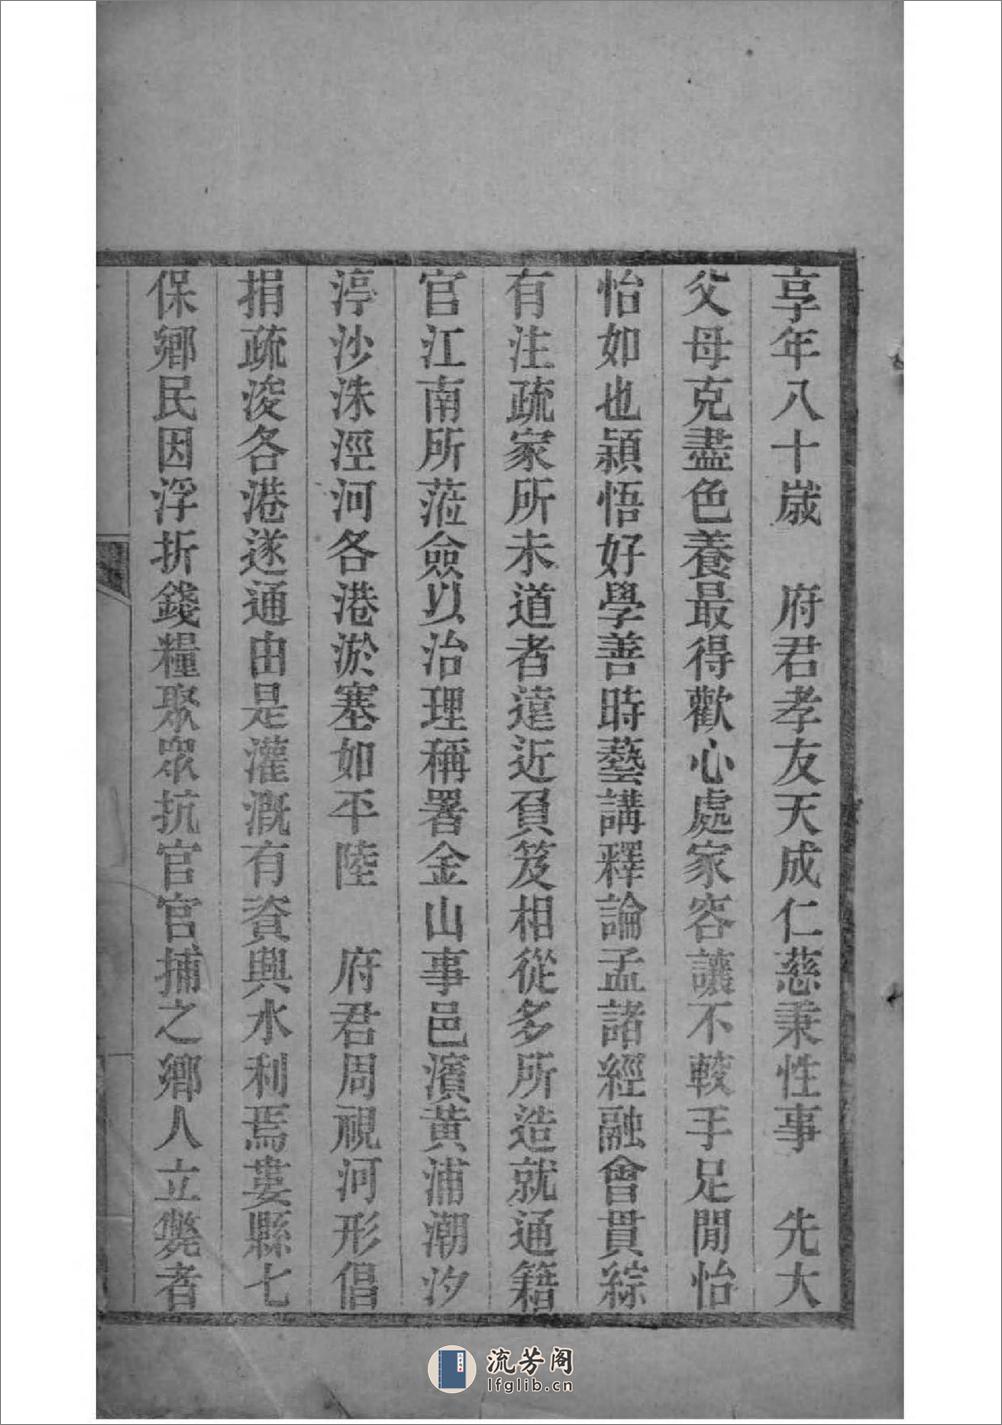 享年八十歲　府君孝友天成仁慈秉性事　先大
父母克盡色養最得歡心處家容讓不較手足間怡
怡如也穎悟好學善時藝講釋論孟諸經融會貫綜
有注疏家所未道者遠近負笈相從多所造就通籍
官江南所蒞僉以治理稱署金山事邑濱黃浦潮汐
渟沙洙涇河各港淤塞如平陸　府君周視河形倡
捐疏浚各港遂通由是灌溉有資興水利焉婁縣七
保鄉民因浮折錢糧聚眾抗官官捕之鄉人立斃者
流芳阁
lfglib.cn